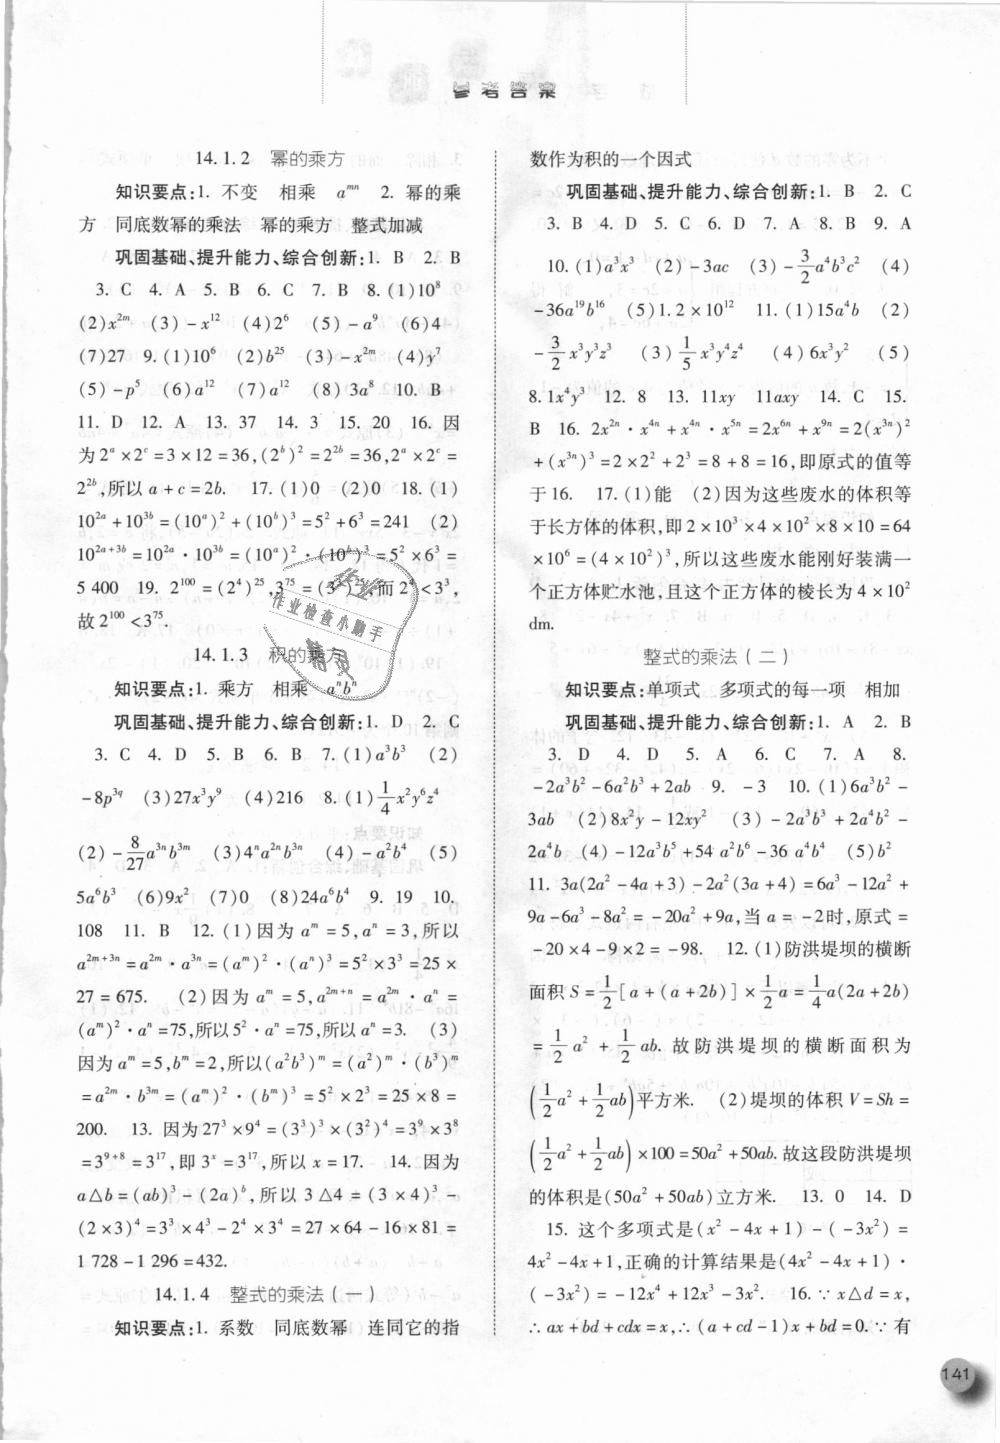 参考答案
14.1.2 幂的乘方
知识要点:1. 不变 相乘 a^{mn} 2. 幂的乘
方 同底数幂的乘法 幂的乘方 整式加减
巩固基础、提升能力、综合创新:1. B 2. B
3. C 4. A 5. B 6. C 7. B 8. (1)10^8
(2)x^{2m} (3)-x^{12} (4)2^6 (5)-a^9 (6)4
(7)27 9. (1)10^6 (2)b^{25} (3)-x^{2m} (4)y^7
(5)-p^5 (6)a^{12} (7)a^{12} (8)3a^8 10. B
11. D 12. A 13. 37 14. 3 15. 20 16. 因
为2^a×2^c=3×12=36,(2^b)^2=2^{2b}=36,2^a×2^c=
2^{2b},所以a+c=2b. 17. (1)0 (2)0 18. (1)
10^{2a}+10^{3b}=(10^a)^2+(10^b)^3=5^2+6^3=241 (2)
10^{2a+3b}=10^{2a}·10^{3b}=(10^a)^2·(10^b)^3=5^2×6^3=
5 400 19. 2^{100}=(2^4)^{25},3^{75}=(3^3)^{25},而2^4<3^3,
故2^{100}<3^{75}.
14.1.3 积的乘方
知识要点:1. 乘方 相乘 a^nb^n
巩固基础、提升能力、综合创新:1. D 2. C
3. C 4. D 5. B 6. B 7. (1)a^3b^3 (2)
-8p^{3q} (3)27x^3y^9 (4)216 8. (1)\frac{1}{4}x^2y^6z^4
(2)-\frac{8}{27}a^{3n}b^{3m} (3)4^na^{2n}b^{3n} (4)-a^2b^4 (5)
5a^6b^3 (6)9x^2 (7)0 (8)24a^6b^4 9. 19 10.
108 11. B 12. (1)因为a^m=5,a^n=3,所以
a^{2m+3n}=a^{2m}·a^{3n}=(a^m)^2·(a^n)^3=5^2×3^3=25×
27=675. (2)因为a^m=5,a^{2m+n}=a^{2m}·a^n=
(a^m)^2·a^n=75,所以5^2·a^n=75,所以a^n=3. (3)
因为a^m=5,b^m=2,所以(a^2b^3)^m=(a^2)^m·(b^3)^m
=a^{2m}·b^{3m}=(a^m)^2·(b^m)^3=5^2×2^3=25×8=
200. 13. 因为27^3×9^4=(3^3)^3×(3^2)^4=3^9×3^8
=3^{9+8}=3^{17},即3^x=3^{17},所以x=17. 14. 因为
a△b=(ab)^3-(2a)^b,所以3△4=(3×4)^3-
(2×3)^4=3^3×4^3-2^4×3^4=27×64-16×81=
1 728-1 296=432.
14.1.4 整式的乘法(一)
知识要点:1. 系数 同底数幂 连同它的指
数作为积的一个因式
巩固基础、提升能力、综合创新:1. B 2. C
3. B 4. D 5. C 6. D 7. A 8. B 9. A
10. (1)a^3x^3 (2)-3ac (3)-\frac{3}{2}a^4b^3c^2 (4)
-36a^{19}b^{16} (5)1.2×10^{12} 11. (1)15a^4b (2)
-\frac{3}{2}x^3y^3z^3 (3)\frac{1}{5}x^3y^4z^4 (4)6x^3y^2 (5)
8.1x^4y^3 12. 8 13. 11xy 11axy 14. C 15.
B 16. 2x^{2n}·x^{4n}+x^{4n}·x^{5n}=2x^{6n}+x^{9n}=2(x^{3n})^2
+(x^{3n})^3=2×2^2+2^3=8+8=16,即原式的值等
于16. 17. (1)能 (2)因为这些废水的体积等
于长方体的体积,即2×10^3×4×10^2×8×10=64
×10^6=(4×10^2)^3,所以这些废水能刚好装满一
个正方体贮水池,且这个正方体的棱长为4×10^2
dm.
整式的乘法(二)
知识要点:单项式 多项式的每一项 相加
巩固基础、提升能力、综合创新:1. A 2. B
3. D 4. D 5. A 6. C 7. A 8.
-2a^3b^2-6a^2b^2+2ab 9. -3 10. (1)6a^3b^2-
3ab (2)8x^2y-12xy^2 (3)-2a^3b^3+2a^4b^2-
2a^4b (4)-12a^3b^5+54a^2b^6-36a^4b^4 (5)b^2
11. 3a(2a^2-4a+3)-2a^2(3a+4)=6a^3-12a^2+
9a-6a^3-8a^2=-20a^2+9a,当a=-2时,原式=
-20×4-9×2=-98. 12. (1)防洪堤坝的横断
面积S=\frac{1}{2}[a+(a+2b)]×\frac{1}{2}a=\frac{1}{4}a(2a+2b)
=\frac{1}{2}a^2+\frac{1}{2}ab. 故防洪堤坝的横断面积为
(\frac{1}{2}a^2+\frac{1}{2}ab)平方米. (2)堤坝的体积V=Sh=
(\frac{1}{2}a^2+\frac{1}{2}ab)×100=50a^2+50ab.故这段防洪堤坝
的体积是(50a^2+50ab)立方米. 13. 0 14. D
15. 这个多项式是(x^2-4x+1)-(-3x^2)=
4x^2-4x+1,正确的计算结果是(4x^2-4x+1)·
(-3x^2)=-12x^4+12x^3-3x^2. 16. ∵x△d=x,
∴ax+bd+cdx=x,∴(a+cd-1)x+bd=0.∵有
141
作业检查小助手
精灵